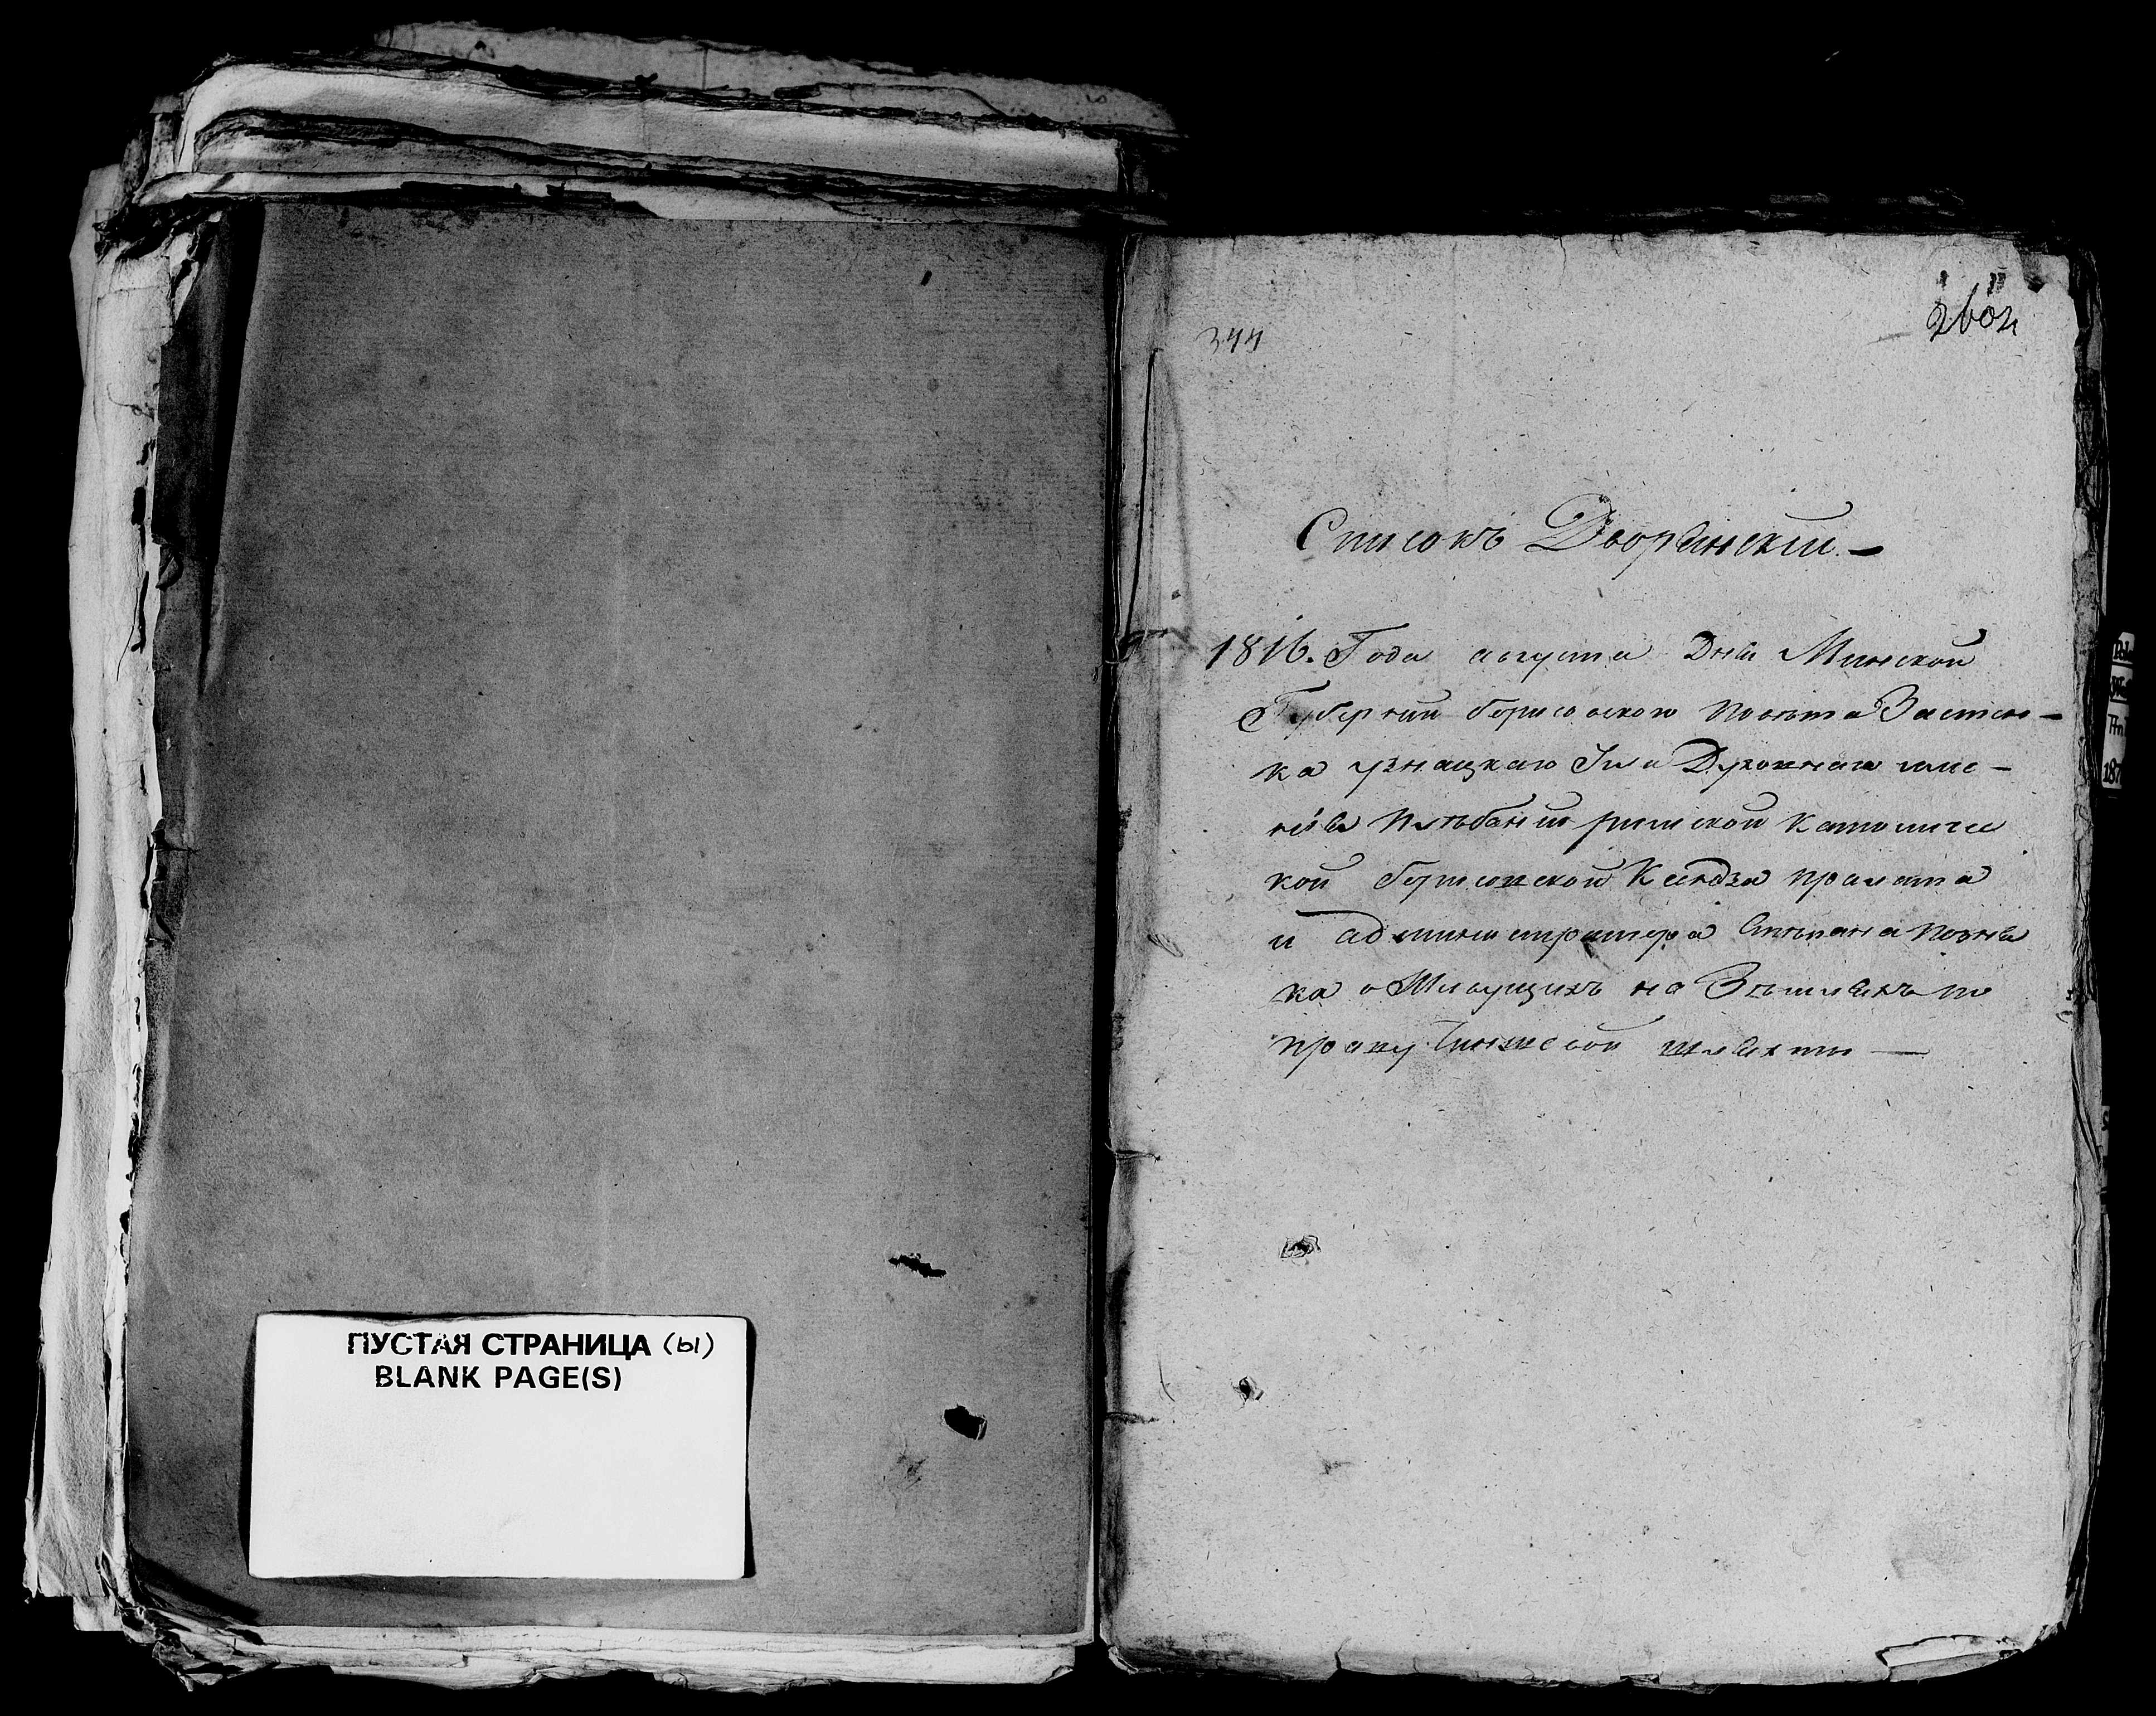 ПУСТАЯ СТРАНИЦА (ы)
BLANK PAGE(S)
344
Списокъ Дворянскій. —
1816. Года августа Дня Минской
Губерніи борисовского повѣта Застен-
ка узнацкаго Духовнаго име-
нія плѣбаніи римской католичес
кой борисовской Ксіондза пралата
и администратора Стѣпана
ка о Живущихъ на Земляхъ по
праву Чиншевой шляхты —